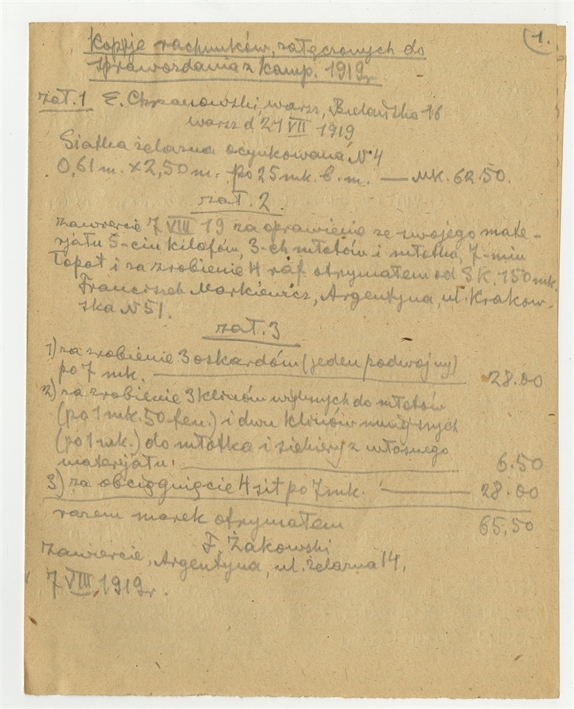 1.
Kopje rachunków, załączonych do
sprawozdania z kamp. 1919 r.
Zał. 1 E. Chrzanowski, Warsz, Bielańska 16
Warsz d 21 VII 1919
Siatka żelazna ocynkowana № 4
0,61 m. x 2,50 m. po 25 mk. b. m. — Mk. 62.50.
zał. 2.
Zawiercie 7 VIII 19 za oprawienie ze swojego mate-
rjału 5-ciu kilofów, 3-ch młotów i młotka, 7-miu
łopat i za zrobienie 4 raf otrzymałem od S K. 150 mk.
Franciszek Markiewicz, Argentyna, ul. Krakow-
ska № 51.
zał. 3
1) za zrobienie 3 oskardów (jeden podwójny)
po 7 mk. 28.00
2) za zrobienie 3 klinów do młotów
(po 1 mk. 50 fen.) i dwu klinów mniejszych
(po 1 mk.) do młotka i siekiery z własnego
materjału. 6.50
3) za obciągnięcie 4 sit po 7 mk. — 28.00
razem marek otrzymałem 65,50
F. Żakowski
Zawiercie, Argentyna, ul. Żelazna 14,
7 VIII 1919 r.